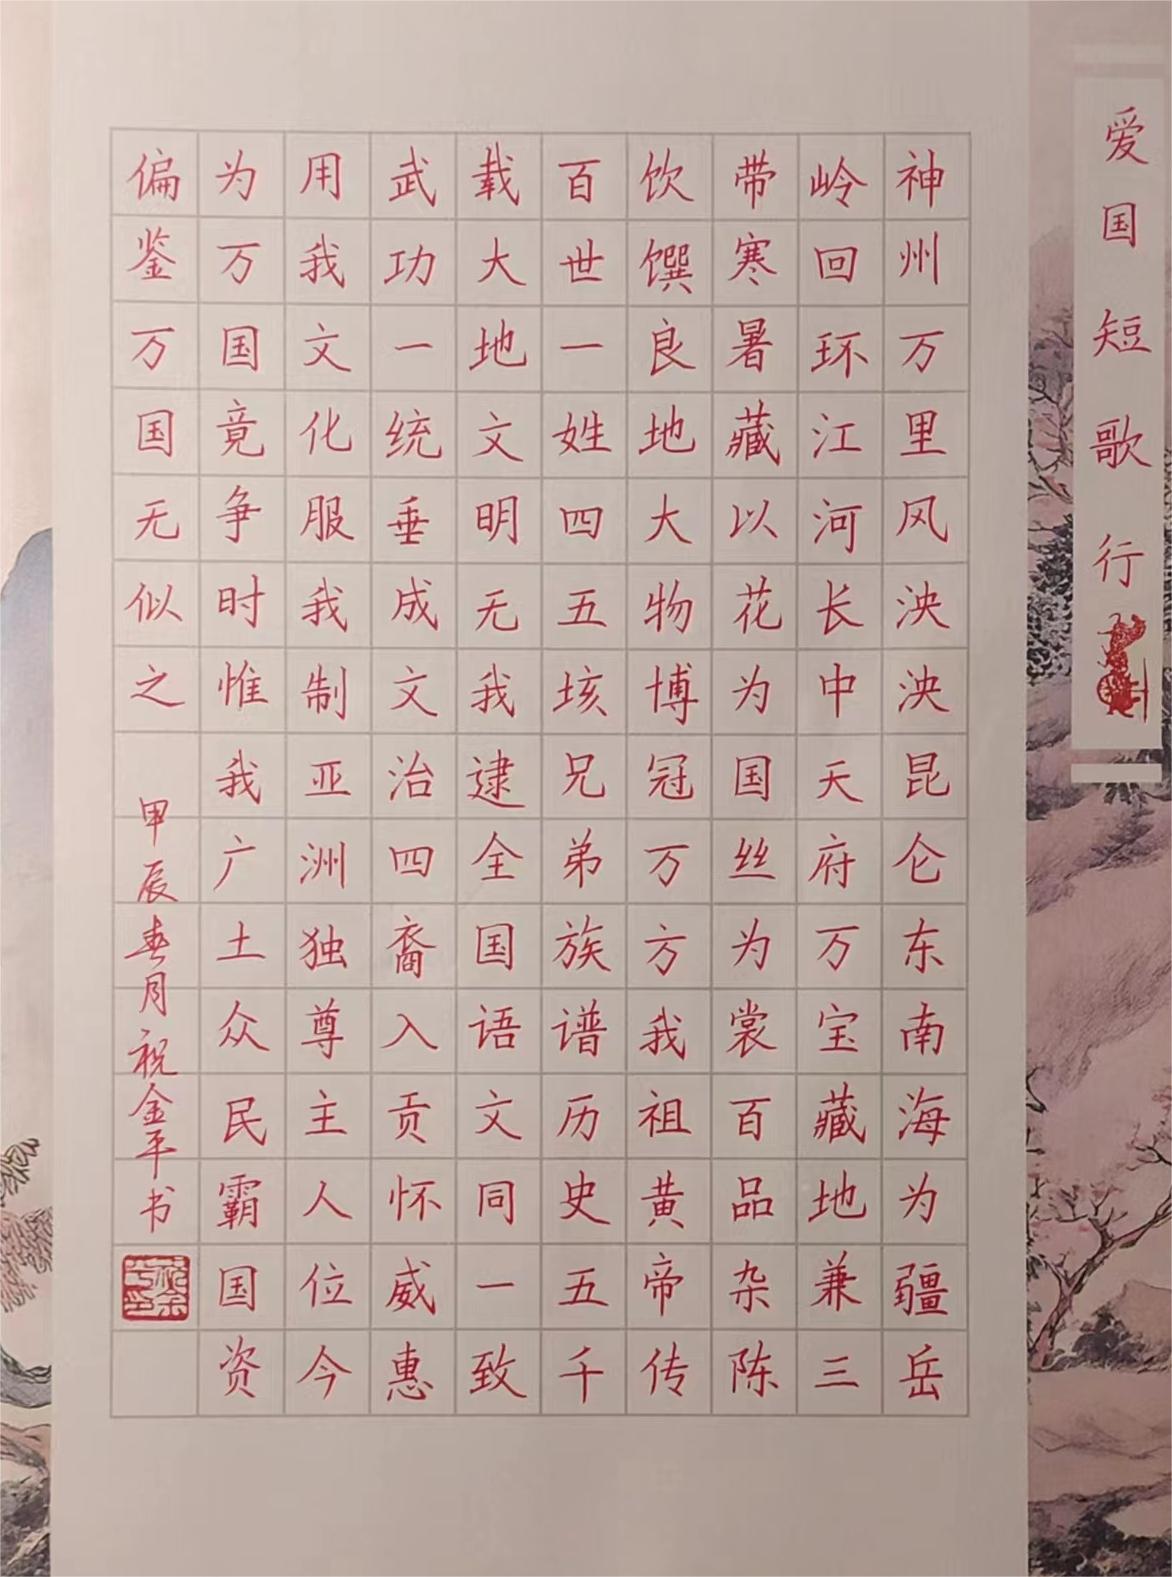 爱国短歌行
神州万里风泱泱昆仑东南海为疆岳
岭回环江河长中天府万宝藏地兼三
带寒暑藏以花为国丝为裳百品杂陈
饮馔良地大物博冠万方我祖黄帝传
百世一姓四五垓兄弟族谱历史五千
载大地文明无我逮全国语文同一致
武功一统垂成文治四裔入贡怀威惠
用我文化服我制亚洲独尊主人位今
为万国竟争时惟我广土众民霸国资
偏鉴万国无似之
甲辰春月祝金平书